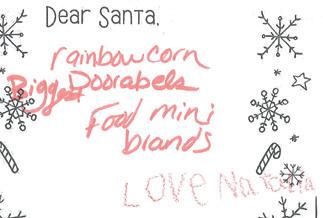 Dear Santa,
rainbowcorn
Biggest Doorabels
Food mini
brands
LOVE